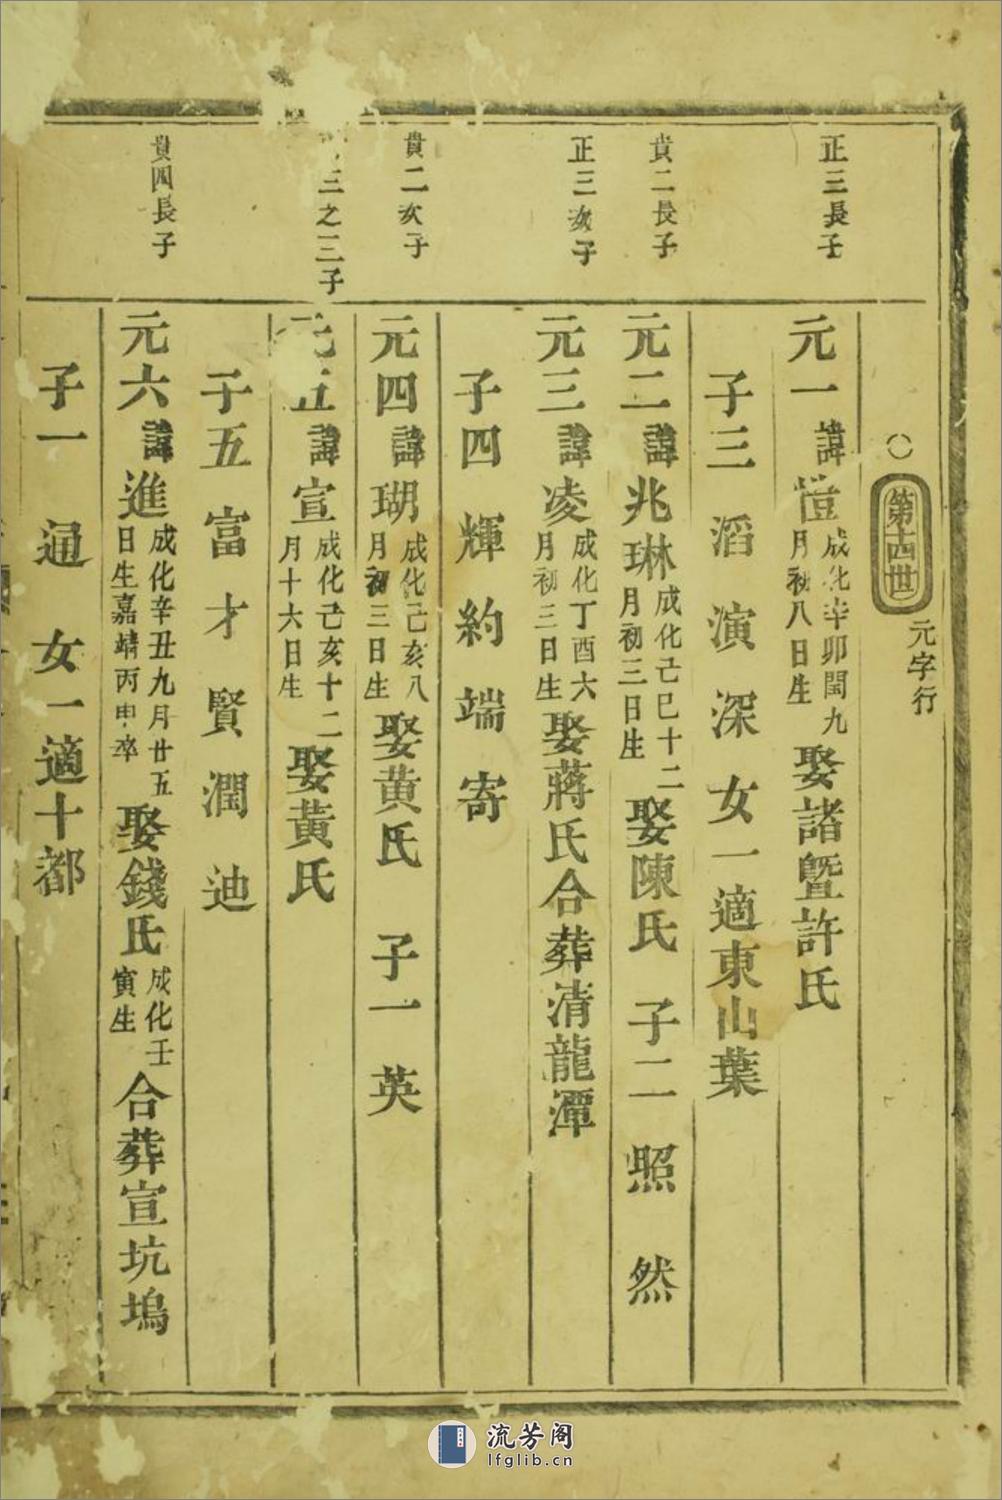 ○第十四世元字行
正三長子
元一諱愷成化辛卯閏九月初八日生娶諸暨許氏
子三滔演深女一適東山葉
貴二長子
元二諱兆琳成化己巳十二月初三日生娶陳氏子二照然
正三次子
元三諱凌成化丁酉六月初三日生娶蔣氏合葬清龍潭
子四輝約端寄
貴二次子
元四諱瑚成化己亥八月初三日生娶黃氏子一英
三之三子
元五諱宣成化己亥十二月十六日生娶黃氏
子五富才賢潤迪
貴四長子
元六諱進成化辛丑九月廿五日生嘉靖丙申卒娶錢氏成化壬寅生合葬宣坑塢
子一通女一適十都
流芳阁
lfglib.cn